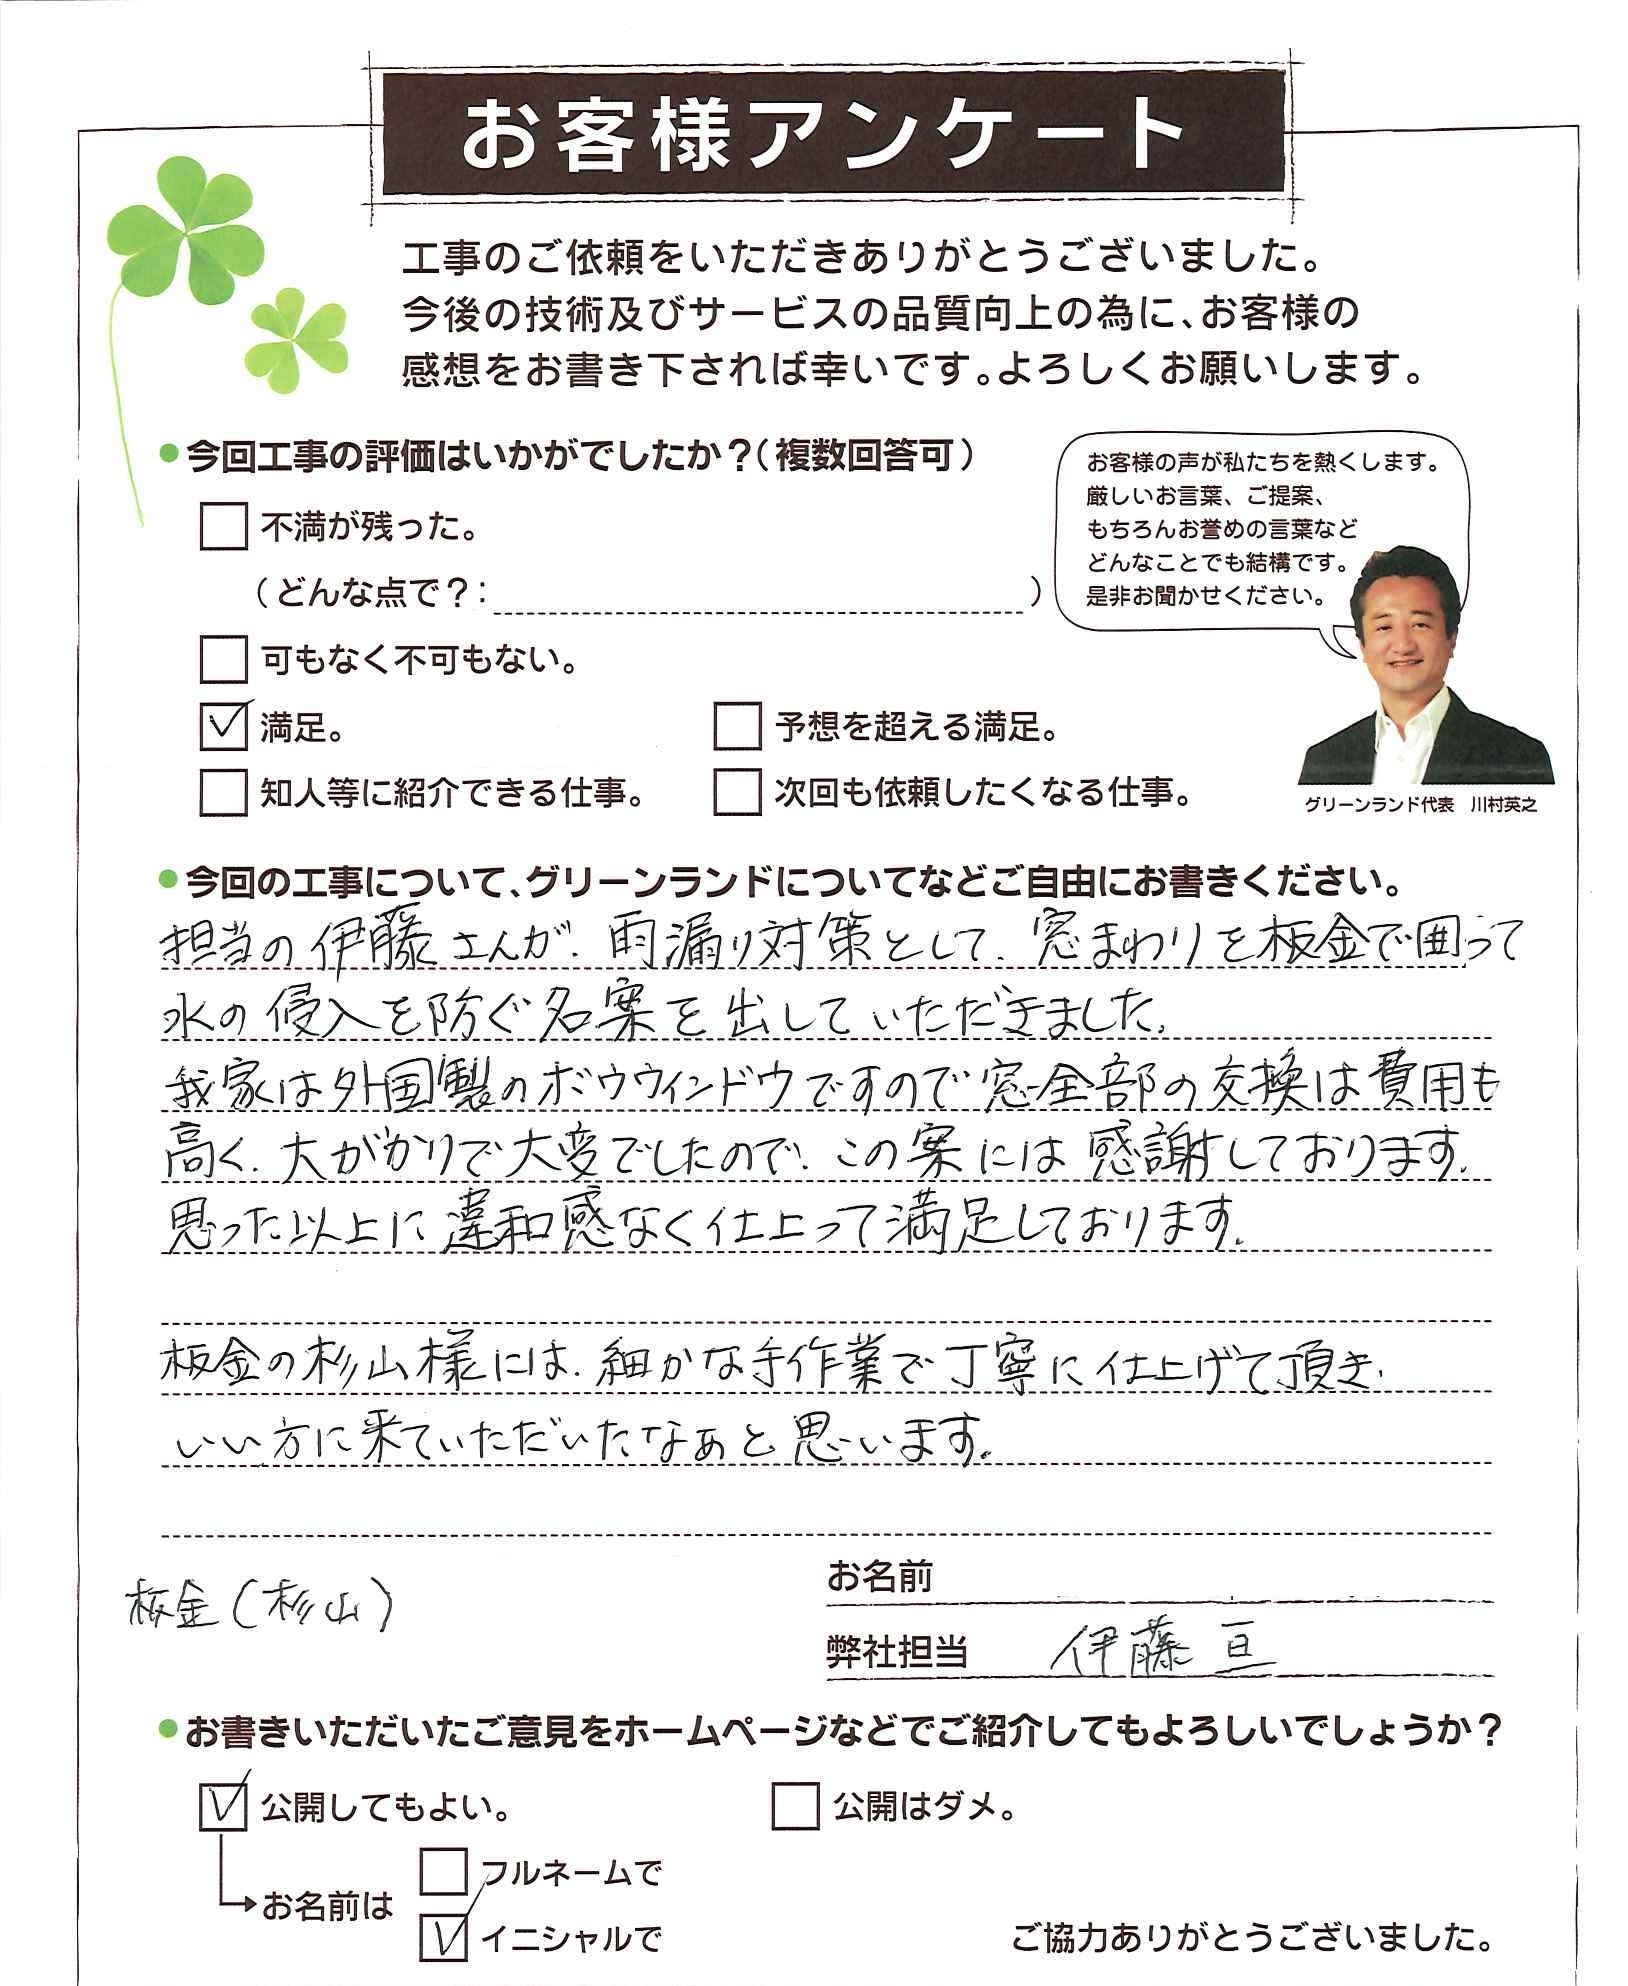 お客様アンケート
工事のご依頼をいただきありがとうございました。
今後の技術及びサービスの品質向上の為に、お客様の
感想をお書き下されば幸いです。よろしくお願いします。
●今回工事の評価はいかがでしたか？（複数回答可）
不満が残った。
（どんな点で？：　）
可もなく不可もない。
満足。　予想を超える満足。
知人等に紹介できる仕事。　次回も依頼したくなる仕事。
お客様の声が私たちを熱くします。
厳しいお言葉、ご提案、
もちろんお誉めの言葉など
どんなことでも結構です。
是非お聞かせください。
グリーンランド代表　川村英之
●今回の工事について、グリーンランドについてなどご自由にお書きください。
担当の伊藤さんが、雨漏り対策として、窓まわりを板金で囲って
水の侵入を防ぐ名案を出していただきました。
我家は外国製のボウウィンドウですので窓全部の交換は費用も
高く、大がかりで大変でしたので、この案には感謝しております。
思った以上に違和感なく仕上って満足しております。
板金の杉山様には、細かな手作業で丁寧に仕上げて頂き、
いい方に来ていただいたなぁと思います。
板金（杉山）
お名前
弊社担当　伊藤 亘
●お書きいただいたご意見をホームページなどでご紹介してもよろしいでしょうか？
公開してもよい。　公開はダメ。
お名前は
フルネームで
イニシャルで
ご協力ありがとうございました。